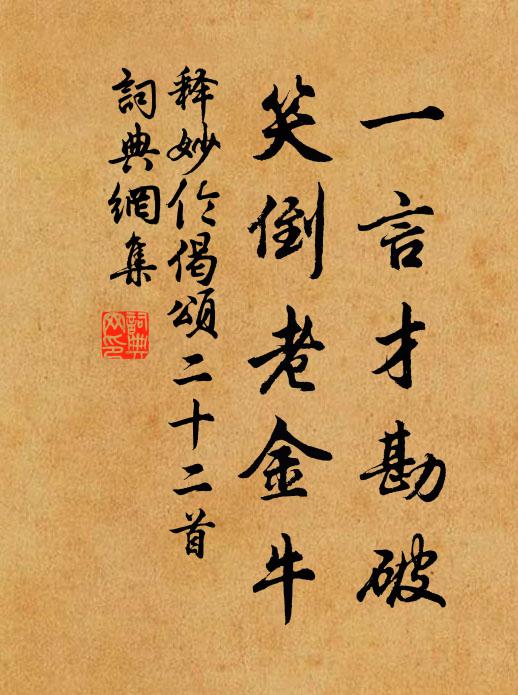 一言才勘破
笑倒老金牛
释妙伦偈頌二十二首
詞典網集
詞典網印